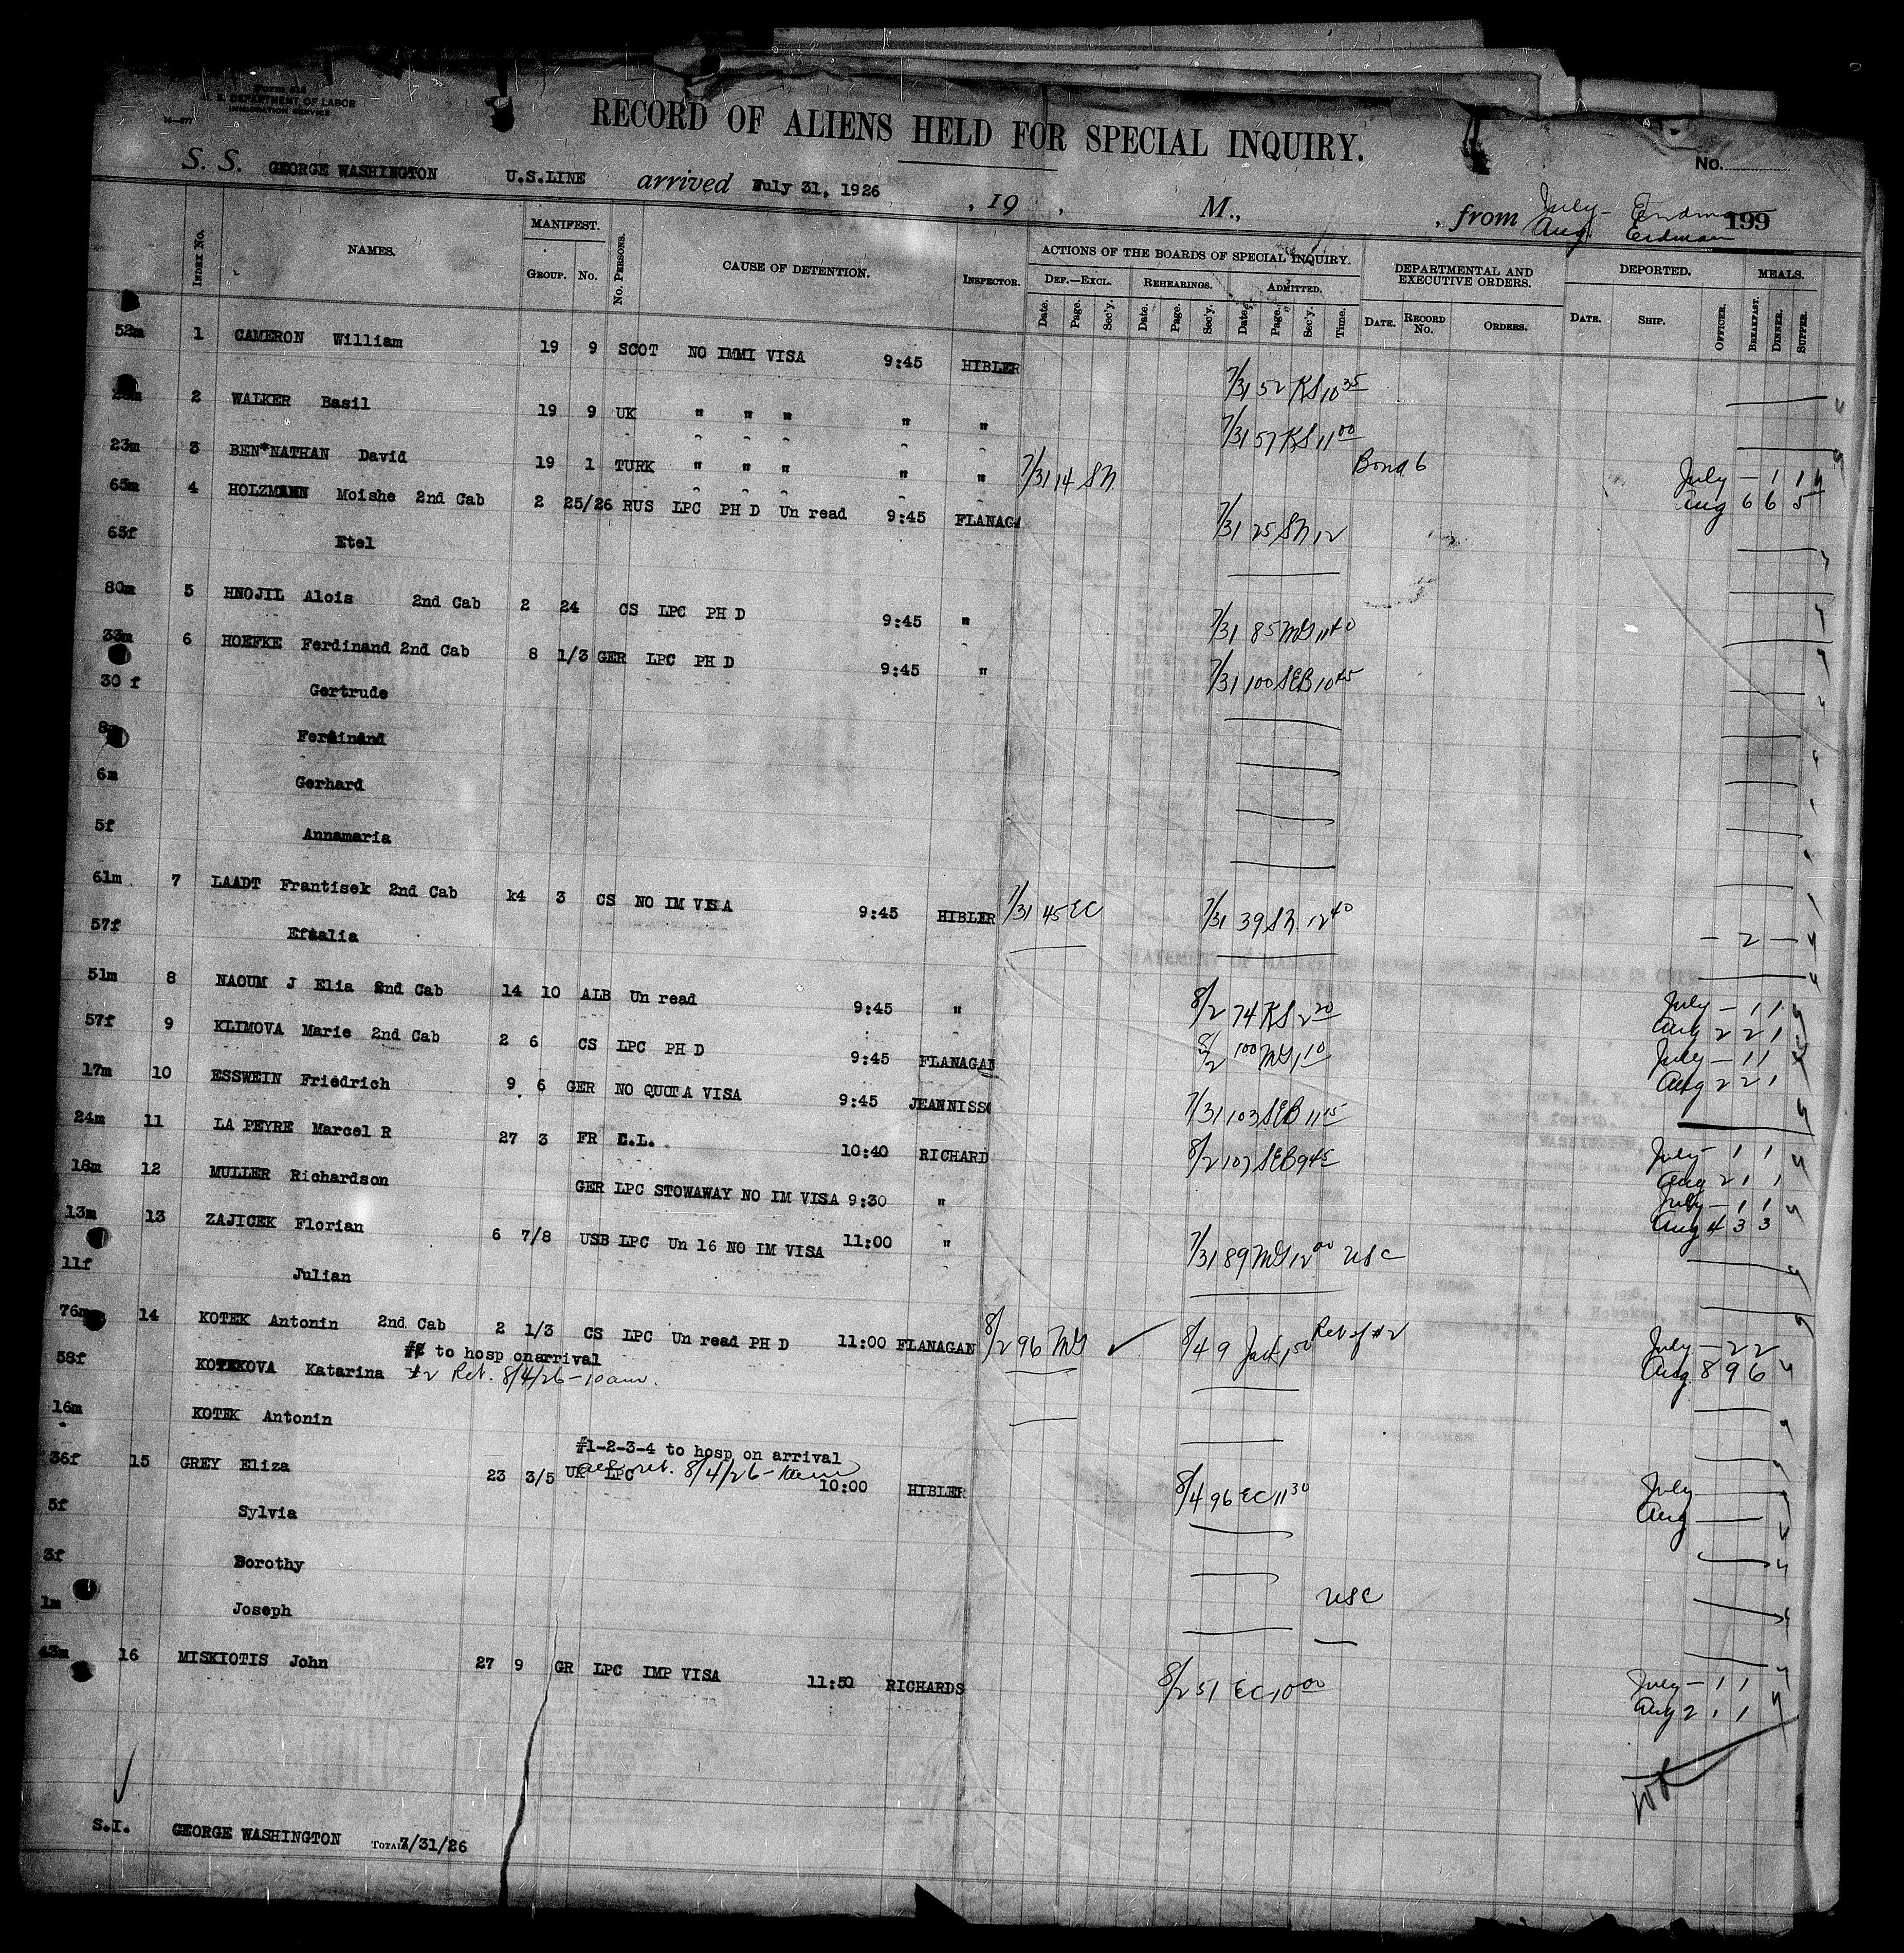 Form 616
U. S. DEPARTMENT OF LABOR
IMMIGRATION SERVICE
14—577
RECORD OF ALIENS HELD FOR SPECIAL INQUIRY.
No.
S. S. GEORGE WASHINGTON U.S.LINE arrived July 31, 1926 , 19 , M., , from July - Erdman 199
Aug Erdman
INDEX No. NAMES. MANIFEST. GROUP. No. No. PERSONS. CAUSE OF DETENTION. INSPECTOR. ACTIONS OF THE BOARDS OF SPECIAL INQUIRY. DEPARTMENTAL AND EXECUTIVE ORDERS. DEPORTED. MEALS.
DEF.—EXCL. REHEARINGS. ADMITTED.
Date. Page. Sec'y. Date. Page. Sec'y. Date. Page. Sec'y. Time. DATE. RECORD No. ORDERS. DATE. SHIP. OFFICER. BREAKFAST. DINNER. SUPPER.
52m 1 CAMERON William 19 9 SCOT NO IMMI VISA 9:45 HIBLER 7/31 52 KS 10 35
2 WALKER Basil 19 9 UK " " " " " 7/31 57 KS 11 00
23m 3 BEN*NATHAN David 19 1 TURK " " " " " 7/31 14 SN Bond 6 July — 1 1
Aug 6 6 5
65m 4 HOLZMANN Moishe 2nd Cab 2 25/26 RUS LPC PH D Un read 9:45 FLANAGA 7/31 25 SN 12
65f Etel
80m 5 HNOJIL Alois 2nd Cab 2 24 CS LPC PH D 9:45 " 7/31 85 MG 11 40
33m 6 HOEFKE Ferdinand 2nd Cab 8 1/3 GER LPC PH D 9:45 " 7/31 100 SEB 10 45
30 f Gertrude
8m Ferdinand
6m Gerhard
5f Annamaria
61m 7 LAADT Frantisek 2nd Cab 14 3 CS NO IM VISA 9:45 HIBLER 7/31 45 EC 7/31 39 SN 12 40
57f Eftalia — 2 —
51m 8 NAOUM J Elia 2nd Cab 14 10 ALB Un read 9:45 " 8/2 74 KS 2 20 July — 1 1
Aug 2 2 1
57f 9 KLIMOVA Marie 2nd Cab 2 6 CS LPC PH D 9:45 FLANAGAN 8/2 100 MG 1 10 July — 1 1
Aug 2 2 1
17m 10 ESSWEIN Friedrich 9 6 GER NO QUOTA VISA 9:45 JEANNISSO 7/31 103 SEB 11 15
24m 11 LA PEYRE Marcel R 27 3 FR C.L. 10:40 RICHARD 8/2 107 SEB 9 45 July — 1 1
Aug 2 1 1
18m 12 MULLER Richardson GER LPC STOWAWAY NO IM VISA 9:30 " July — 1 1
Aug 4 3 3
13m 13 ZAJICEK Florian 6 7/8 USB LPC Un 16 NO IM VISA 11:00 " 7/31 89 MG 12 00 USC
11f Julian
76m 14 KOTEK Antonin 2nd Cab 2 1/3 CS LPC Un read PH D 11:00 FLANAGAN 8/2 96 MG ✓ 8/4 9 Jack 1 50 Ret of #2 July — 2 2
#2 to hosp onarrival Aug 8 9 6
58f KOTEKOVA Katarina #2 Ret. 8/4/26 - 10 am.
16m KOTEK Antonin
#1-2-3-4 to hosp on arrival
36f 15 GREY Eliza 23 3/5 UK LPC all ret. 8/4/26 - 10am 10:00 HIBLER 8/4 96 EC 11 30 July —
5f Sylvia Aug —
3f Dorothy
1m Joseph USC
43m 16 MISKIOTIS John 27 9 GR LPC IMP VISA 11:50 RICHARDS 8/2 51 EC 10 00 July — 1 1
Aug 2 1 1
S.I. GEORGE WASHINGTON TOTAL 7/31/26